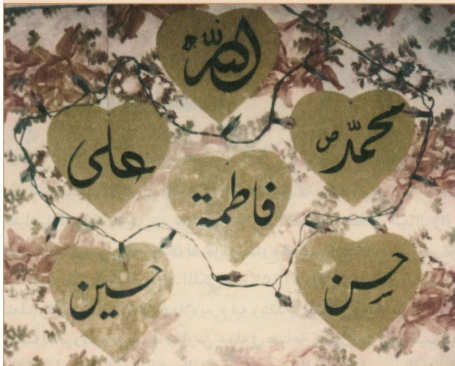 الله
محمد ص
علی
فاطمة
حسن
حسین